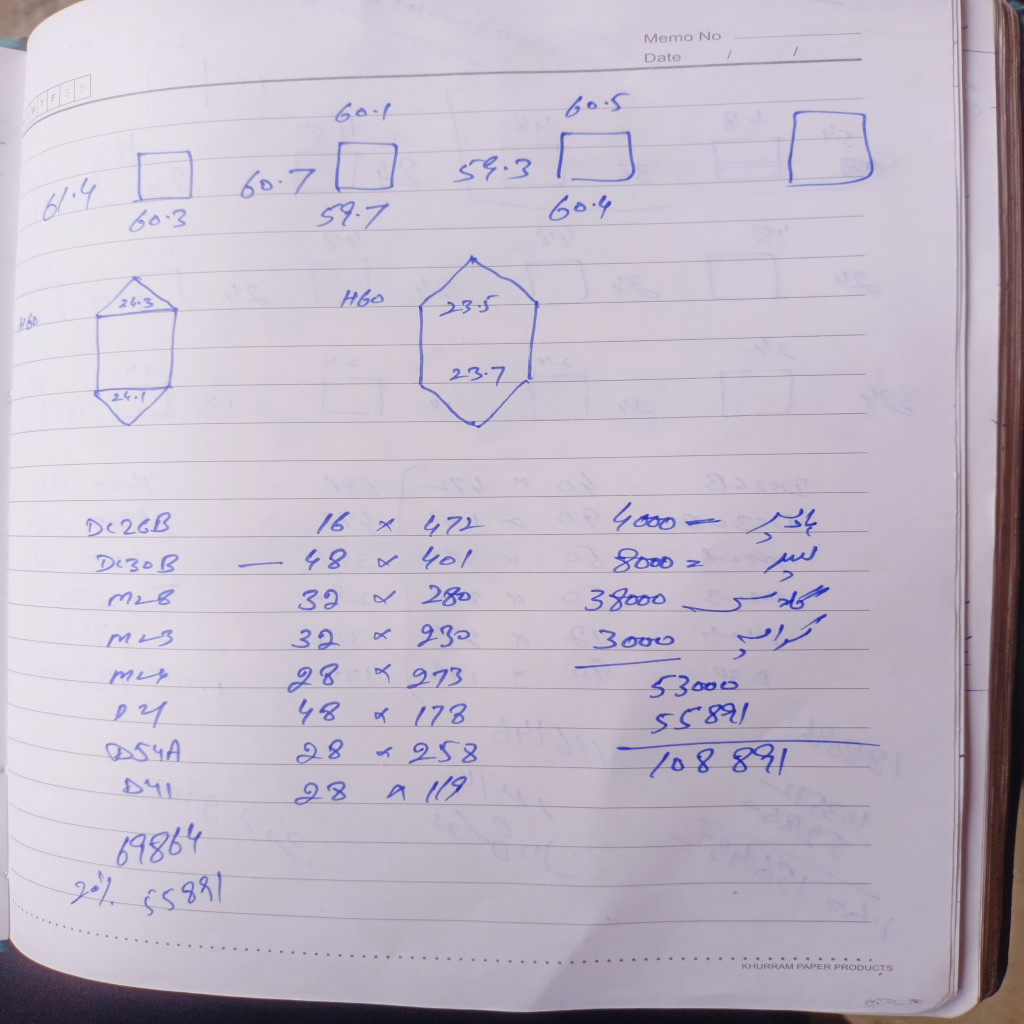 Memo No
Date / /
W T F S S
60.1 60.5
61.4 60.7 59.3
60.3 59.7 60.4
H60 24.3 H60 23.5
24.1 23.7
DC26B 16 × 472 4000 —
DC30B — 48 × 401 8000 = لیبر
ML8 32 × 280 38000
ML3 32 × 230 3000 کرایہ
ML4 28 × 273 53000
48 × 178 55891
D54A 28 × 258 108891
D41 28 × 119
69864
20% 55891
KHURRAM PAPER PRODUCTS